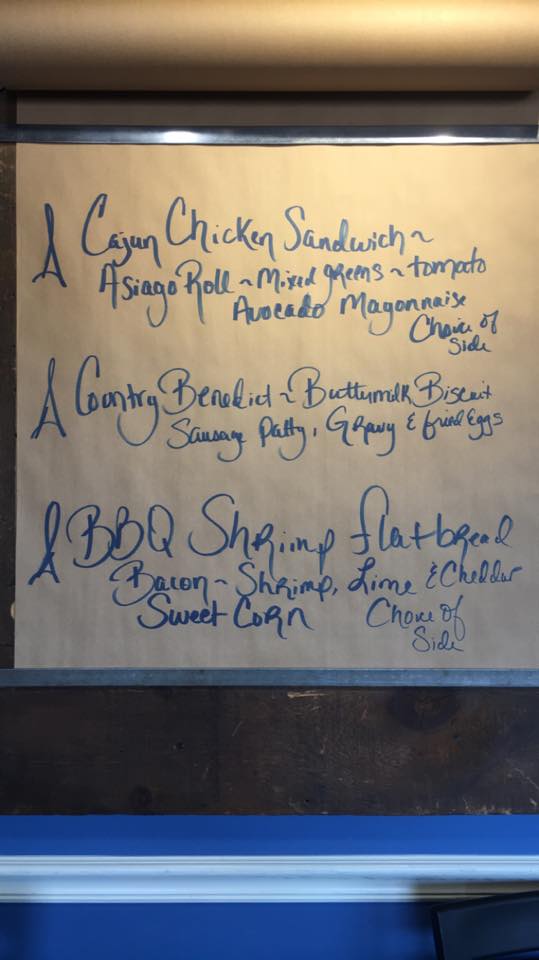 Cajun Chicken Sandwich ~
Asiago Roll ~ Mixed greens ~ tomato
Avocado Mayonnaise
Choice of
Side
Country Benedict ~ Buttermilk Biscuit
Sausage Patty, Gravy & fried Eggs
BBQ Shrimp flatbread
Bacon ~ Shrimp, Lime & Cheddar
Sweet Corn
Choice of
Side